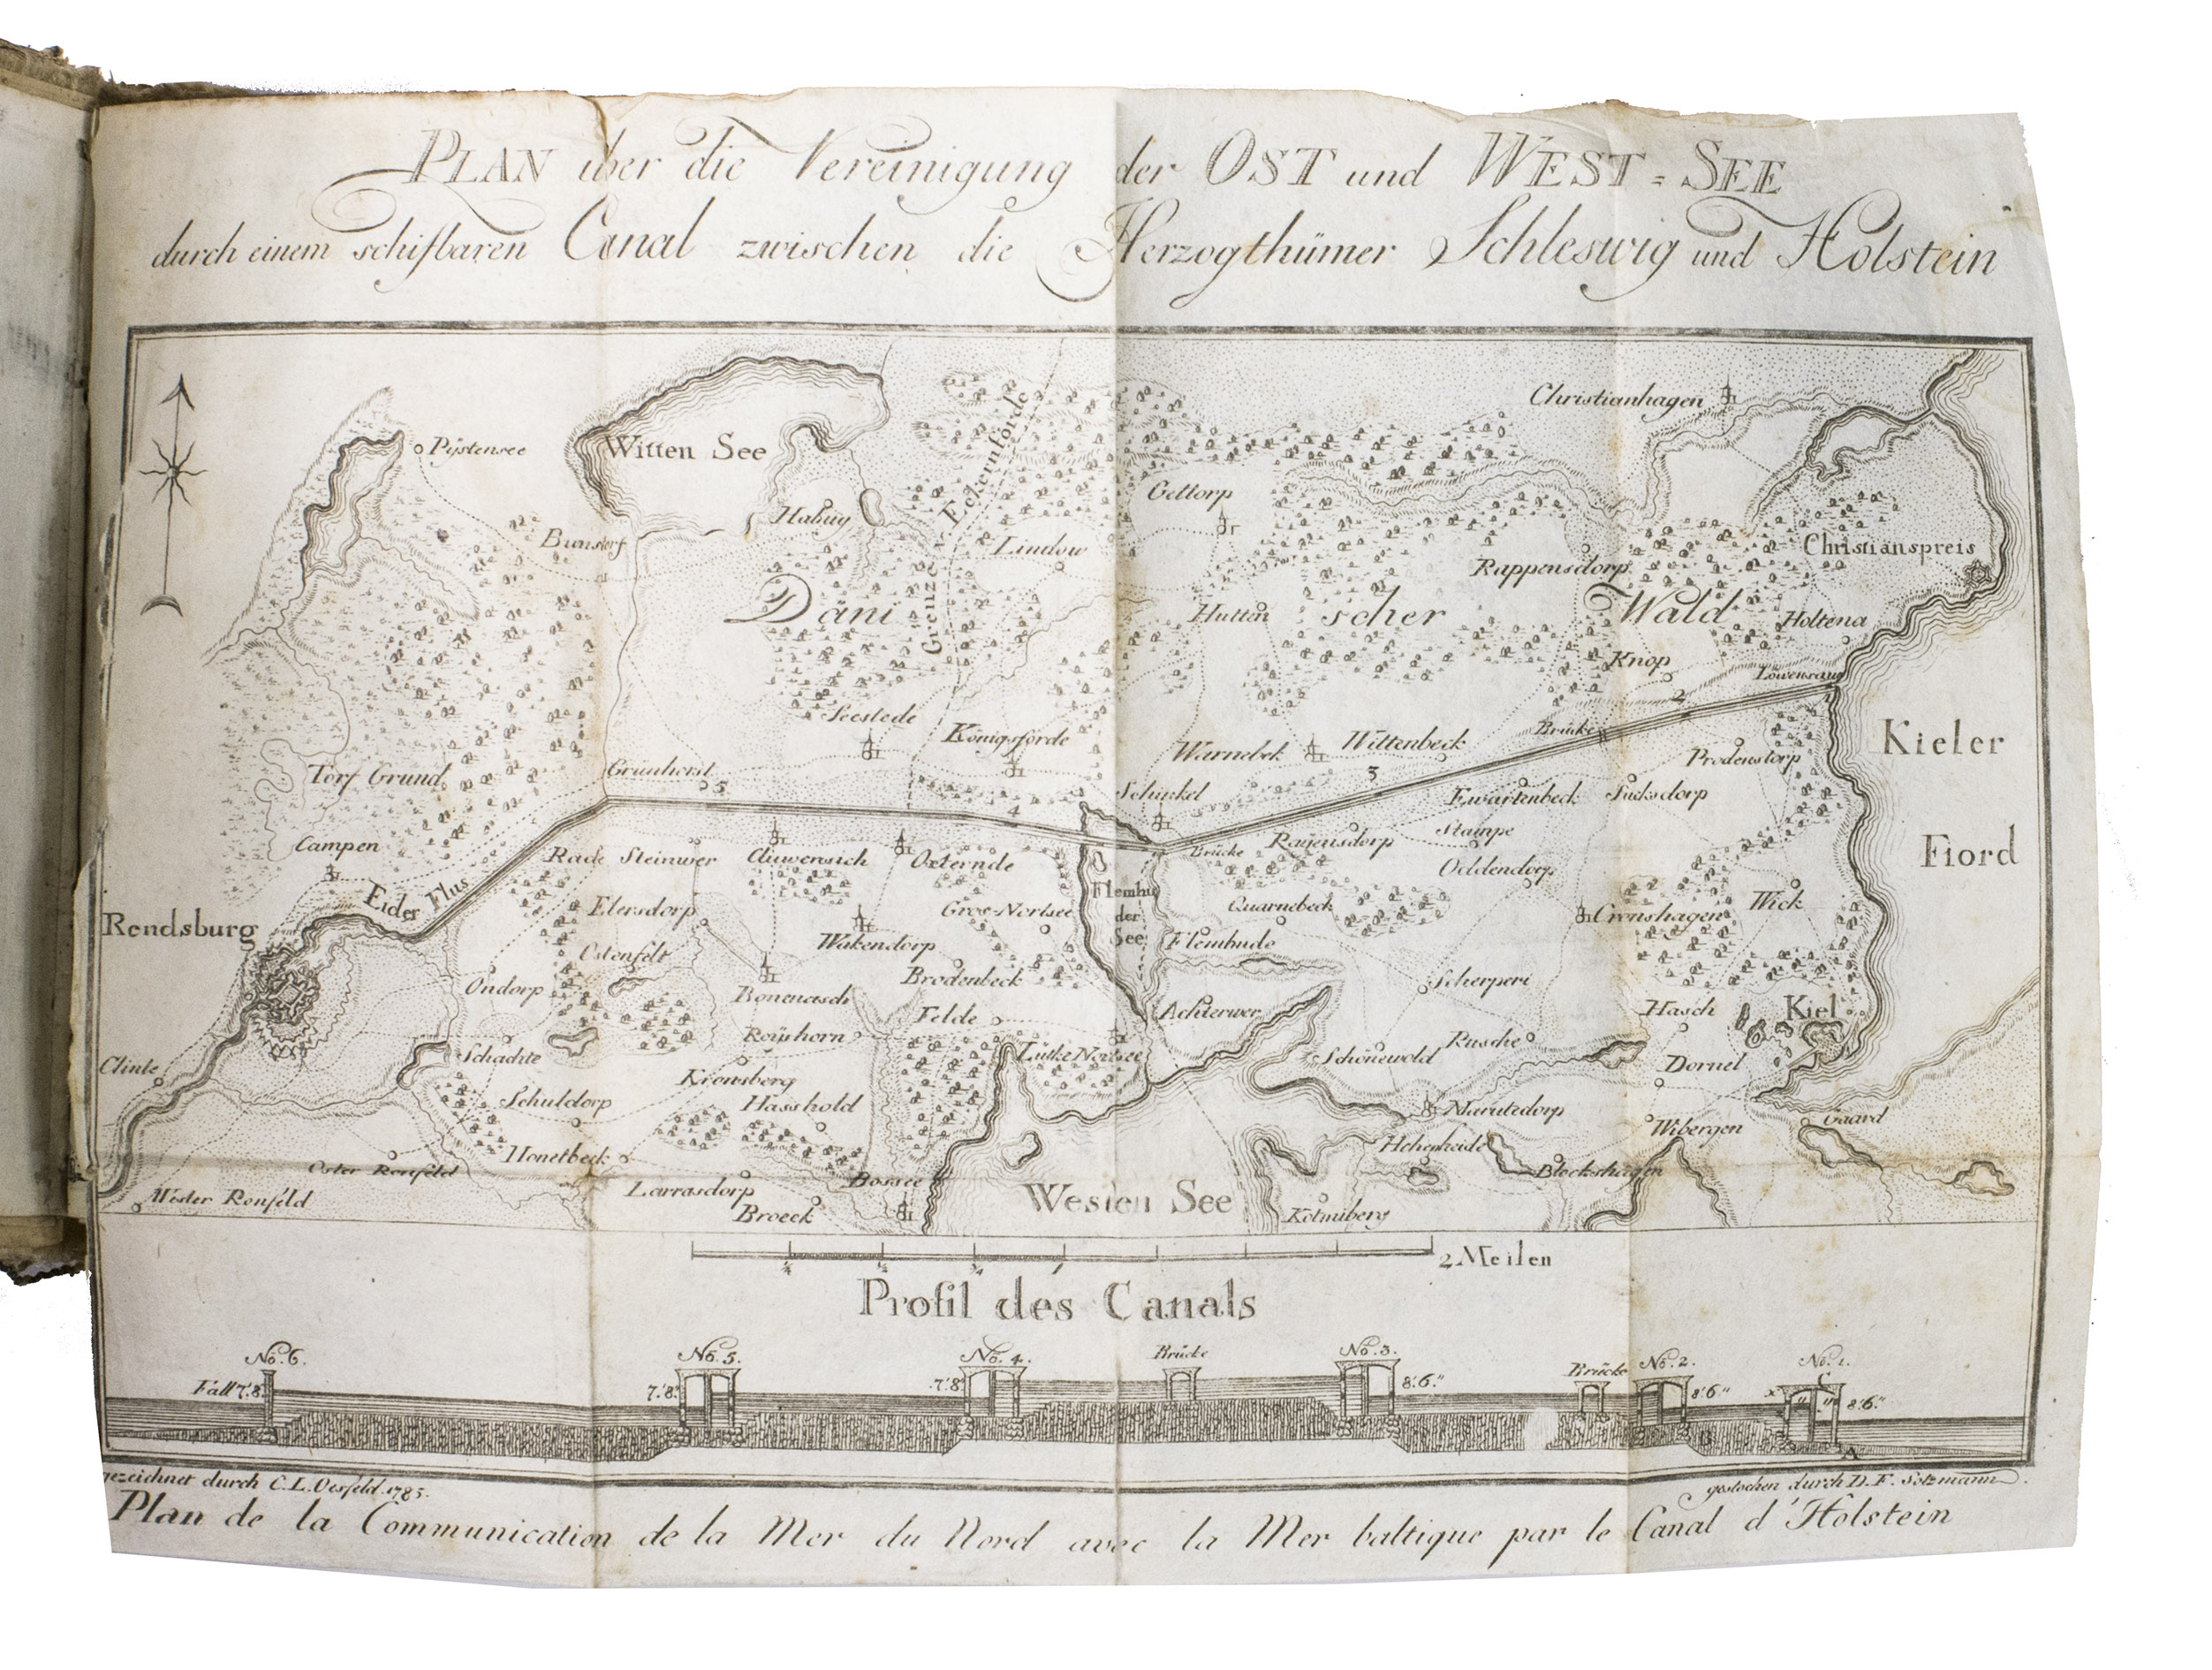 PLAN uber die Vereinigung der OST und WEST = SEE
durch einem schifbaren Canal zwischen die Herzogthümer Schleswig und Holstein
Christianhagen
Pystensee
Witten See
Eckernförde
Gettorp
Habug
Bunstorf
Lindow
Christianspreis
Rappensdorp
Grenze
Däni scher Wald
Hutten
Holtena
Knop
Löwensau
Seestede
Königsförde
Warnebek
Wittenbeck
Brücke
2
Kieler
Fiord
Prodenstorp
Torf Grund
Grünhorst
5
4
3
Schinkel
Ewartenbeck
Sucksdorp
Stampe
Campen
Rade
Steinwer
Cluwensich
Oxternde
Brücke
Rajensdorp
Oddendorp
Eider Flus
Rendsburg
Elersdorp
Gros-Nortsee
Flemhu
der
See
Quarnebeck
Cronshagen
Wick
Wakendorp
Ostenfelt
Flemhude
Ondorp
Brodenbeck
Bonenasch
Scherperi
Felde
Achterwer
Hasch
Kiel
Roijshorn
Lütke Nortsee
Rusche
Schönewold
Schachte
Dornel
Clinte
Krensberg
Schuldorp
Hasshold
Marutedorp
Wibergen
Gaard
Honetbeck
Hehenheide
Oster Ronfeld
Blockshagen
Bossee
Wester Ronfeld
Larrasdorp
Westen See
Broeck
Kotmiberg
2 Meilen
Profil des Canals
No. 6. No. 5. No. 4. Brücke No. 3. Brücke No. 2. No. 1.
Fall 7.'8." 7.'8." 7.'8." 8.'6." 8.'6." 8.'6."
x C y
B A
gezeichnet durch C. L. Oesfeld. 1785.
gestochen durch D. F. Sotzmann.
Plan de la Communication de la Mer du Nord avec la Mer baltique par le Canal d'Holstein